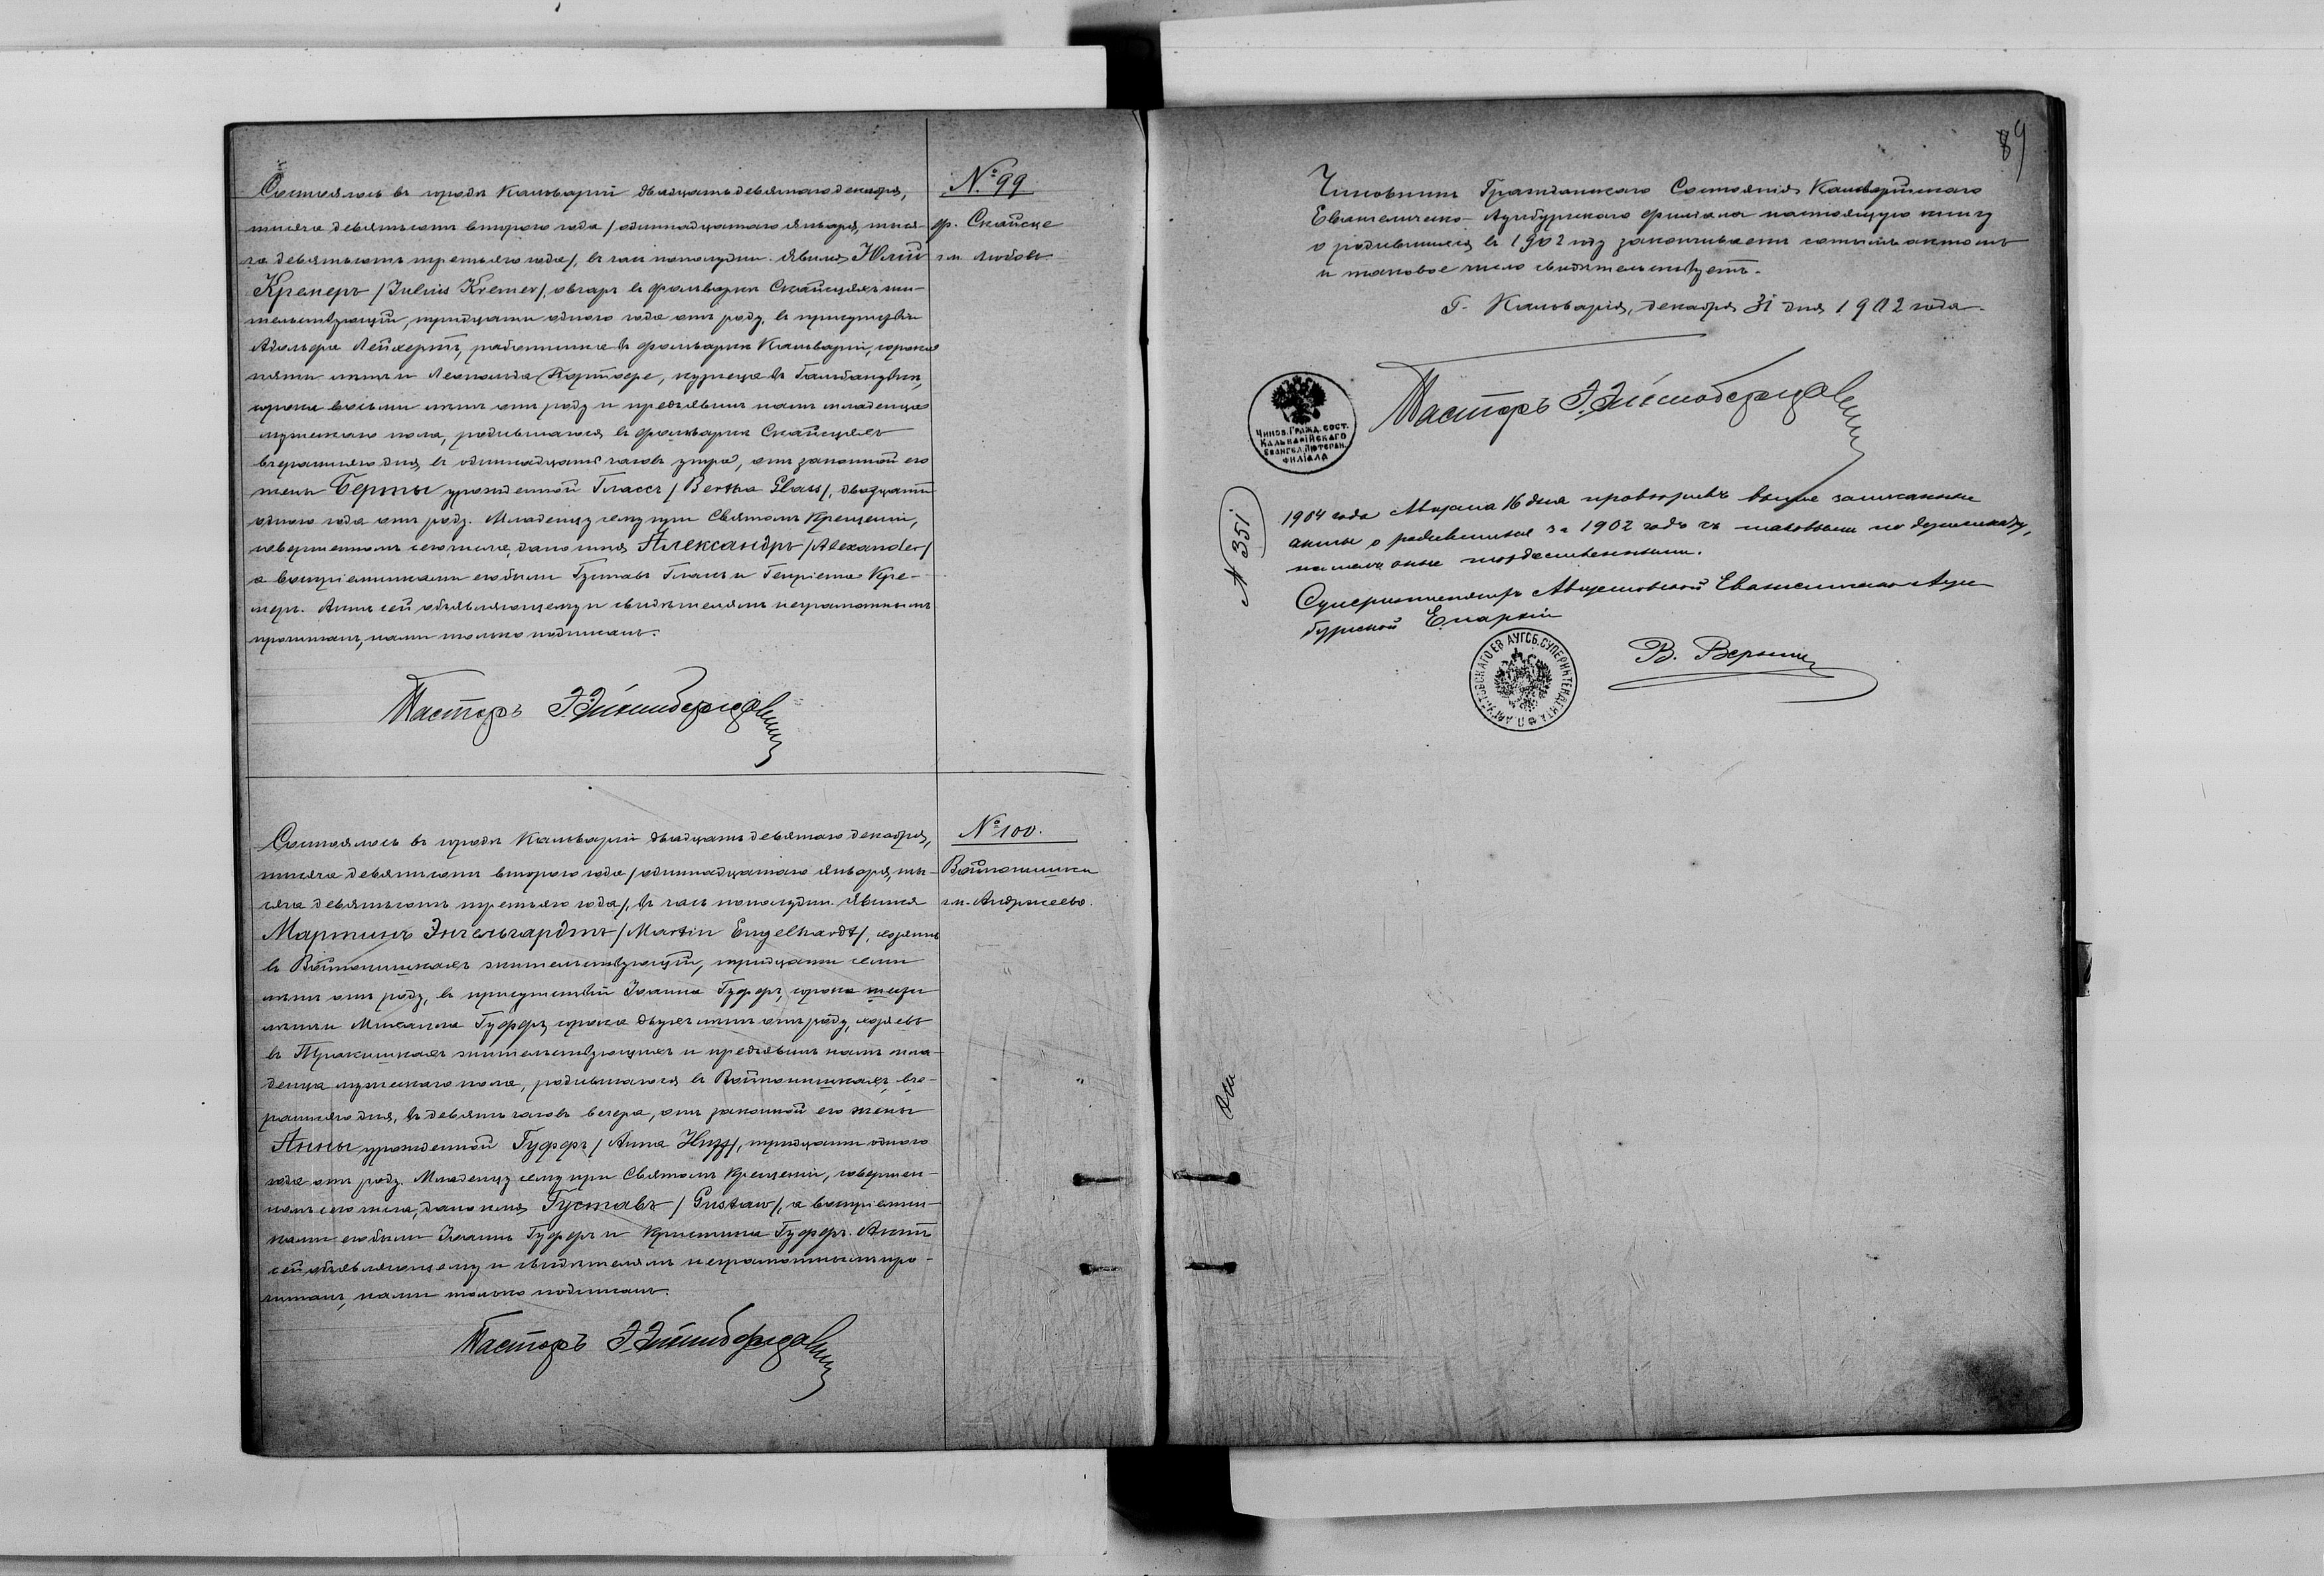 Состоялось въ городѣ Кальваріи двадцать девятаго декабря,
тысяча девятьсотъ второго года / одиннадцатаго января, тыся-
ча девятьсотъ третьяго года /, въ часъ пополудни. Явился Юлій
Кремеръ / Julius Kremer /, овчаръ въ фольваркѣ Скайсцяхъ жи-
тельствующій, тридцати одного года отъ роду, въ присутствіи
Адольфа Лейхертъ, работника въ фольваркѣ Кальваріи, сорока
пяти лѣтъ и Леопольда, кузнеца въ
сорока восьми лѣтъ отъ роду и предъявилъ намъ младенца
мужескаго пола, родившагося въ фольваркѣ Скайсцяхъ
вчерашняго дня, въ одиннадцать часовъ утра, отъ законной его
жены Берты урожденной Глассъ / Bertha Glass /, двадцати
одного года отъ роду. Младенцу сему при Святомъ Крещеніи,
совершенномъ сего числа, дано имя Александръ / Alexander /
а воспріемниками его были Густавъ Гласъ и Генріета Кре-
меръ. Актъ сей объявляющему и свидѣтелямъ неграмотнымъ
прочитанъ, нами только подписанъ.
Пасторъ
№ 99
ф. Скайсце
гм. Любовъ
Состоялось въ городѣ Кальваріи двадцать девятаго декабря,
тысяча девятьсотъ второго года / одиннадцатаго января, ты-
сяча девятьсотъ третьяго года /, въ часъ пополудни. Явился
Мартинъ Энгельгардтъ / Martin Engelhardt /, хозяинъ
въ Войпонишкахъ жительствующій, тридцати семи
лѣтъ отъ роду, въ присутствіи Іоанна Гуффъ, сорока
лѣтъ и Михаила Гуффъ, сорока двухъ лѣтъ отъ роду, хозяевъ
въ Тракишкахъ жительствующихъ и предъявилъ намъ мла-
денца мужескаго пола, родившагося въ Войпонишкахъ, вче-
рашняго дня, въ девять часовъ вечера, отъ законной его жены
Анны урожденной Гуффъ / Anna Huff /, тридцати одного
года отъ роду. Младенцу сему при Святомъ Крещеніи, совершен-
номъ сего числа, дано имя Густавъ / Gustaw /, а воспріемни-
ками его были Іоаннъ Гуффъ и Кристина Гуффъ. Актъ
сей объявляющему и свидѣтелямъ неграмотнымъ про-
читанъ, нами только подписанъ.
Пасторъ
№ 100.
Войпонишки
гм. Андржеево.
89
Чиновникъ Гражданскаго Состоянія Кальварійскаго
Евангелическо-Аугсбургскаго филіала настоящую книгу
о родившихся въ 1902 году заканчиваетъ сотымъ актомъ
и таковое число свидѣтельствуетъ.
Г. Кальварія, декабря 31 дня 1902 года.
Пасторъ
Чинов. Гражд. сост.
Кальварійскаго
Евангел. Лютеран.
филіала
№ 351
1904 года Августа 16 дня провѣривъ выше записанные
акты о родившихся за 1902 годъ съ таковыми по дупликату,
нашелъ оные тождественными.
Суперинтендентъ Августовской Евангелическо-Аугс-
бургской Епархіи